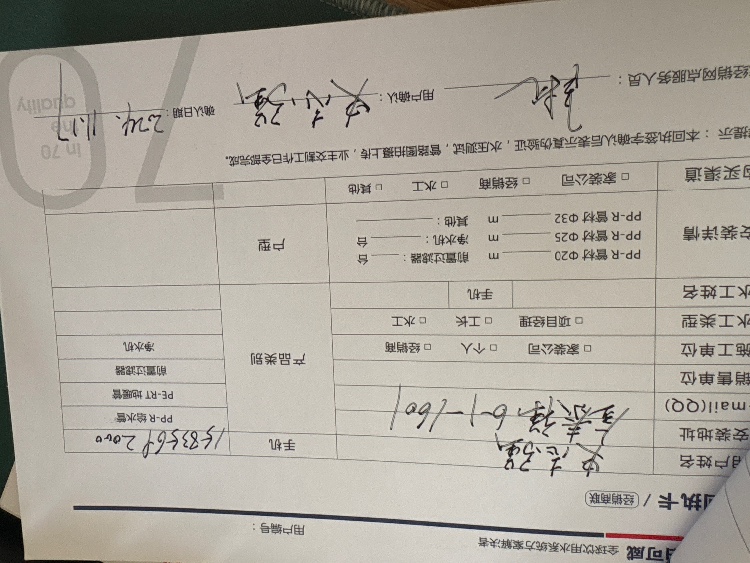 可威 全球饮用水系统方案解决者
用户编号：
回执卡 / 经销商联
用户姓名
手机 15835692000
安装地址 6-1-1601
E-mail(QQ)
销售单位
施工单位 □ 家装公司 □ 个人 □ 经销商
水工类型 □ 项目经理 □ 工长 □ 水工
水工姓名 手机
产品类别
PP-R 给水管
PE-RT 地暖管
前置过滤器
净水机
安装详情
PP-R 管材 Φ20 m 前置过滤器： 台
PP-R 管材 Φ25 m 净水机： 台
PP-R 管材 Φ32 m 其他：
户型
购买渠道 □ 家装公司 □ 经销商 □ 水工 □ 其他
提示：本回执签字确认后表示真伪验证，水压测试，管路图拍摄上传，业主交割工作日全部完成。
经销网点服务人员： 用户确认 确认日期：224.11.17
70
in 70
ine
quality